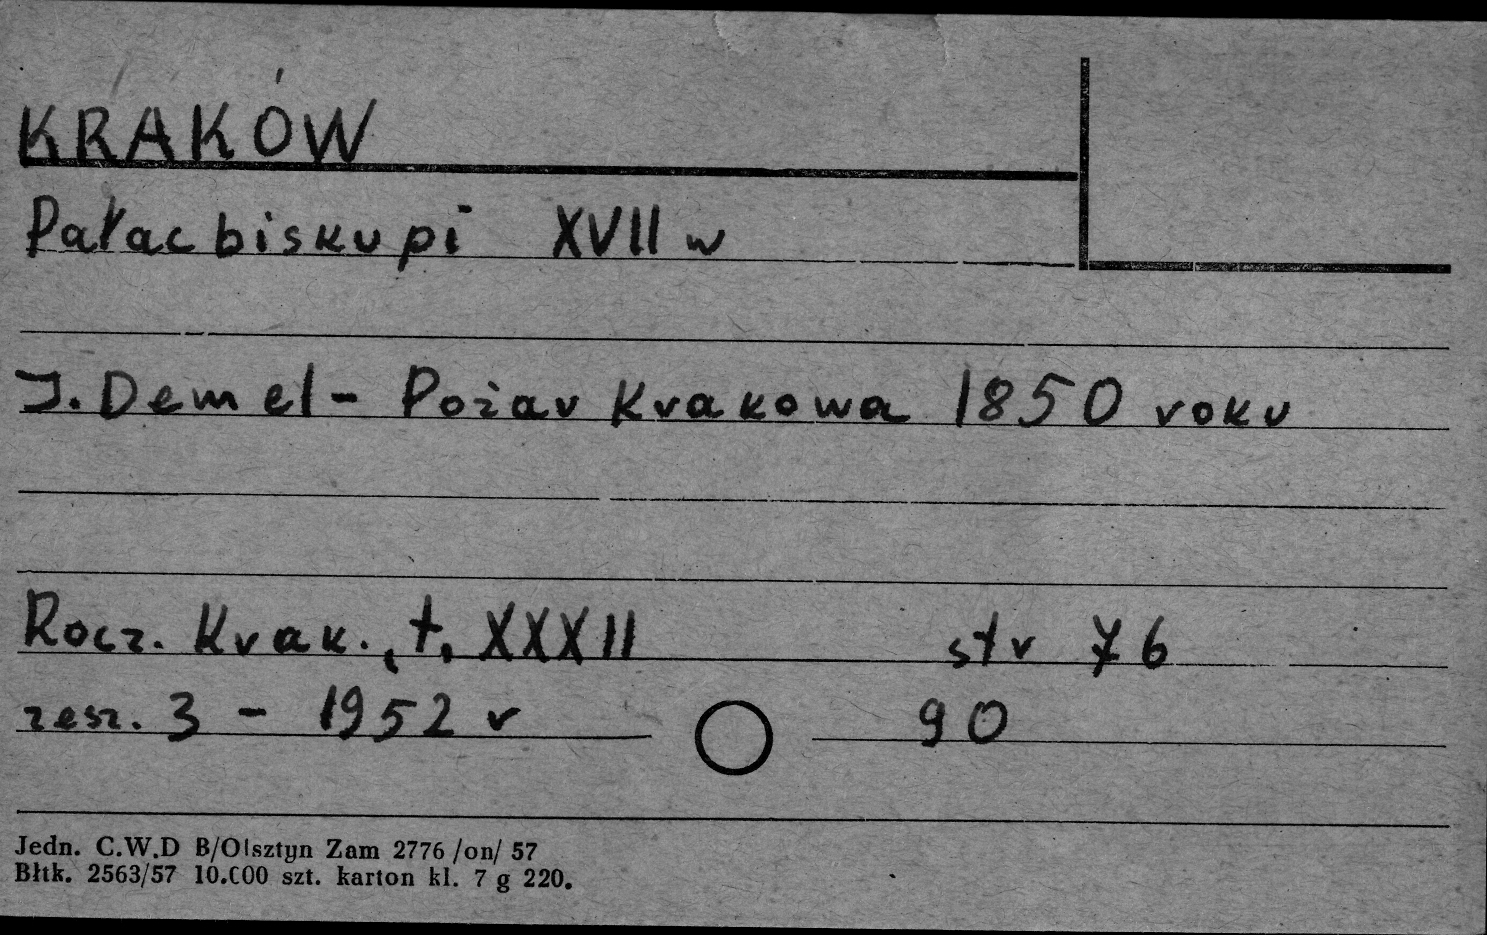 KRAKÓW
Pałac biskupi XVII w
J. Demel - Pożar Krakowa 1850 roku
Rocz. Krak., t. XXXII str 76
zesz. 3 - 1952 r 90
Jedn. C.W.D B/Olsztyn Zam 2776 /on/ 57
Błtk. 2563/57 10.000 szt. karton kl. 7 g 220.